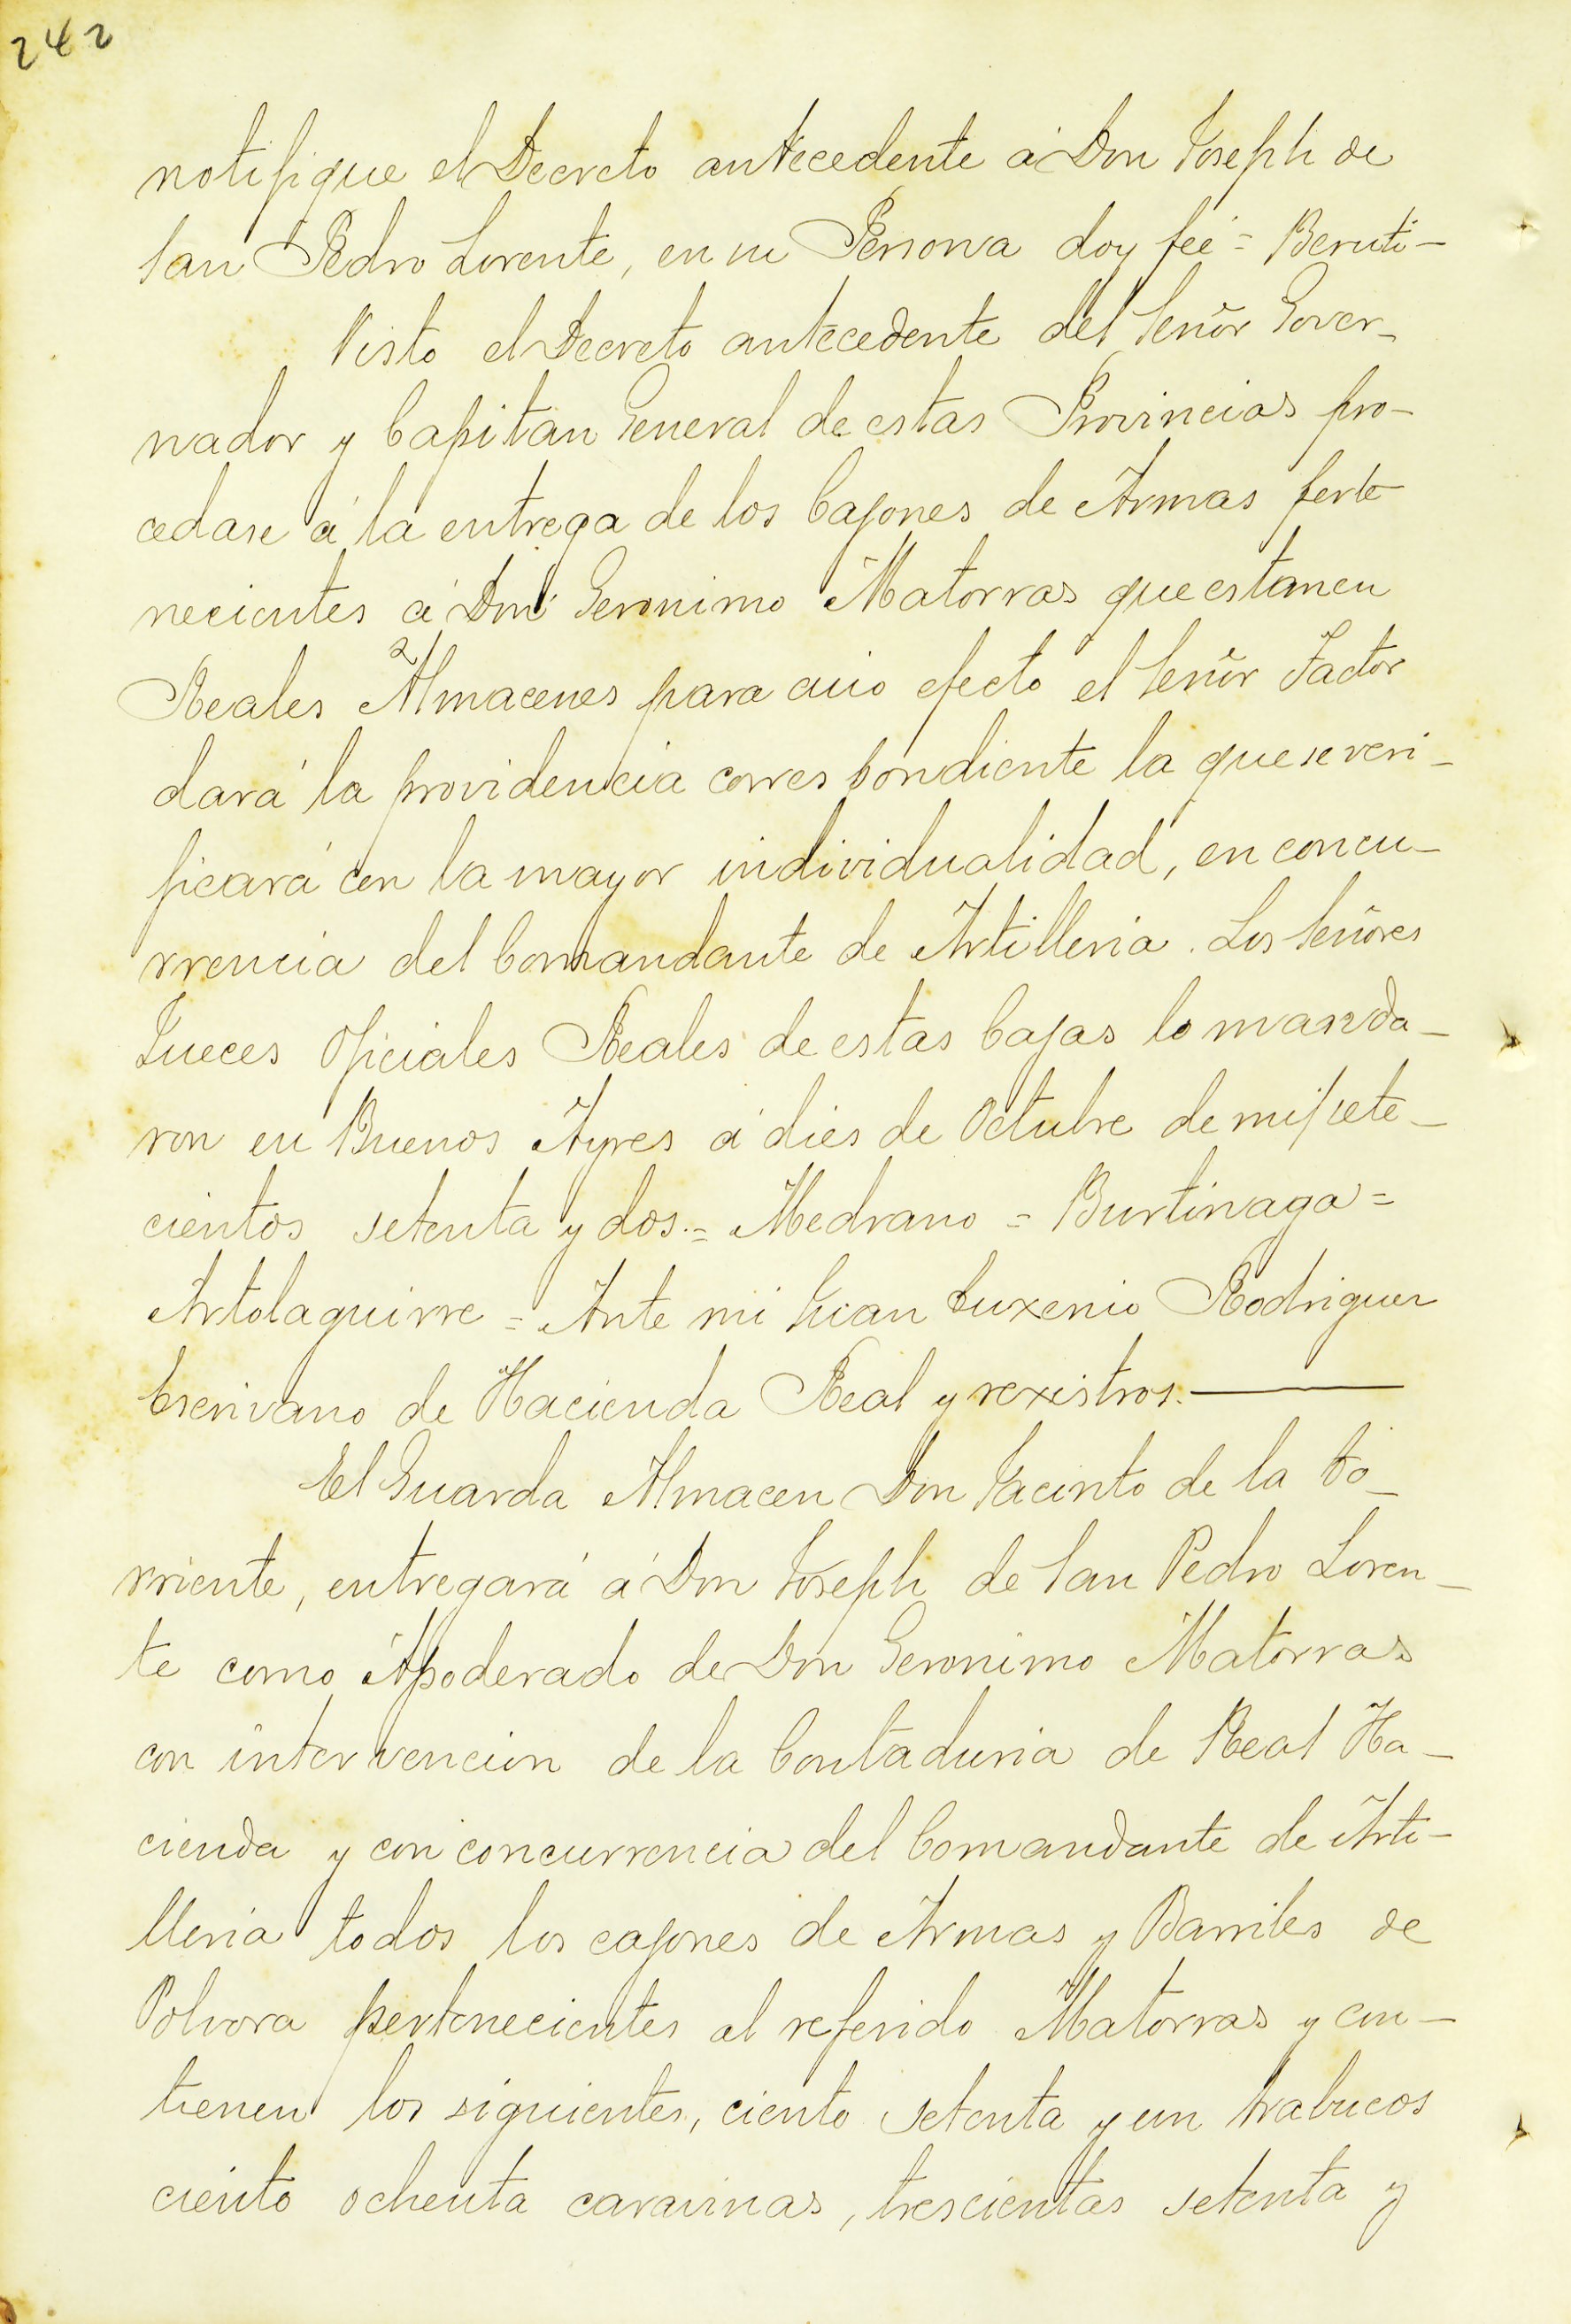 242
notifique el Decreto antecedente á Don Joseph de
San Pedro Lorente, en su Persona doy feé = Beruti -
Visto el Decreto antecedente del Señor Gover-
nador y Capitan General de estas Provincias pro-
cedase á la entrega de los Cajones de Armas perte-
necientes á Don Geronimo Matorras que estan en
Reales Almacenes para cuio efecto el Señor Factor
dará la providencia correspondiente la que se veri-
ficará con la mayor individualidad, en concu-
rrencia del Comandante de Artilleria. Los Señores
Jueces Oficiales Reales de estas Cajas lo manda-
ron en Buenos Ayres á dies de Octubre de mil sete-
cientos setenta y dos.= Medrano = Burtinaga =
Artolaguirre = Ante mi Juan Euxenio Rodriguez
Escrivano de Hacienda Real y rexistros.
El Guarda Almacen Don Jacinto de la Co-
rriente, entregará á Don Joseph de San Pedro Loren-
te como Apoderado de Don Geronimo Matorras
con intervencion de la Contaduria de Real Ha-
cienda y con concurrencia del Comandante de Arti-
lleria todos los cajones de Armas y Barriles de
Polvora pertenecientes al referido Matorras y con-
tienen los siguientes, ciento setenta y un trabucos
ciento ochenta caravinas, trescientas setenta y